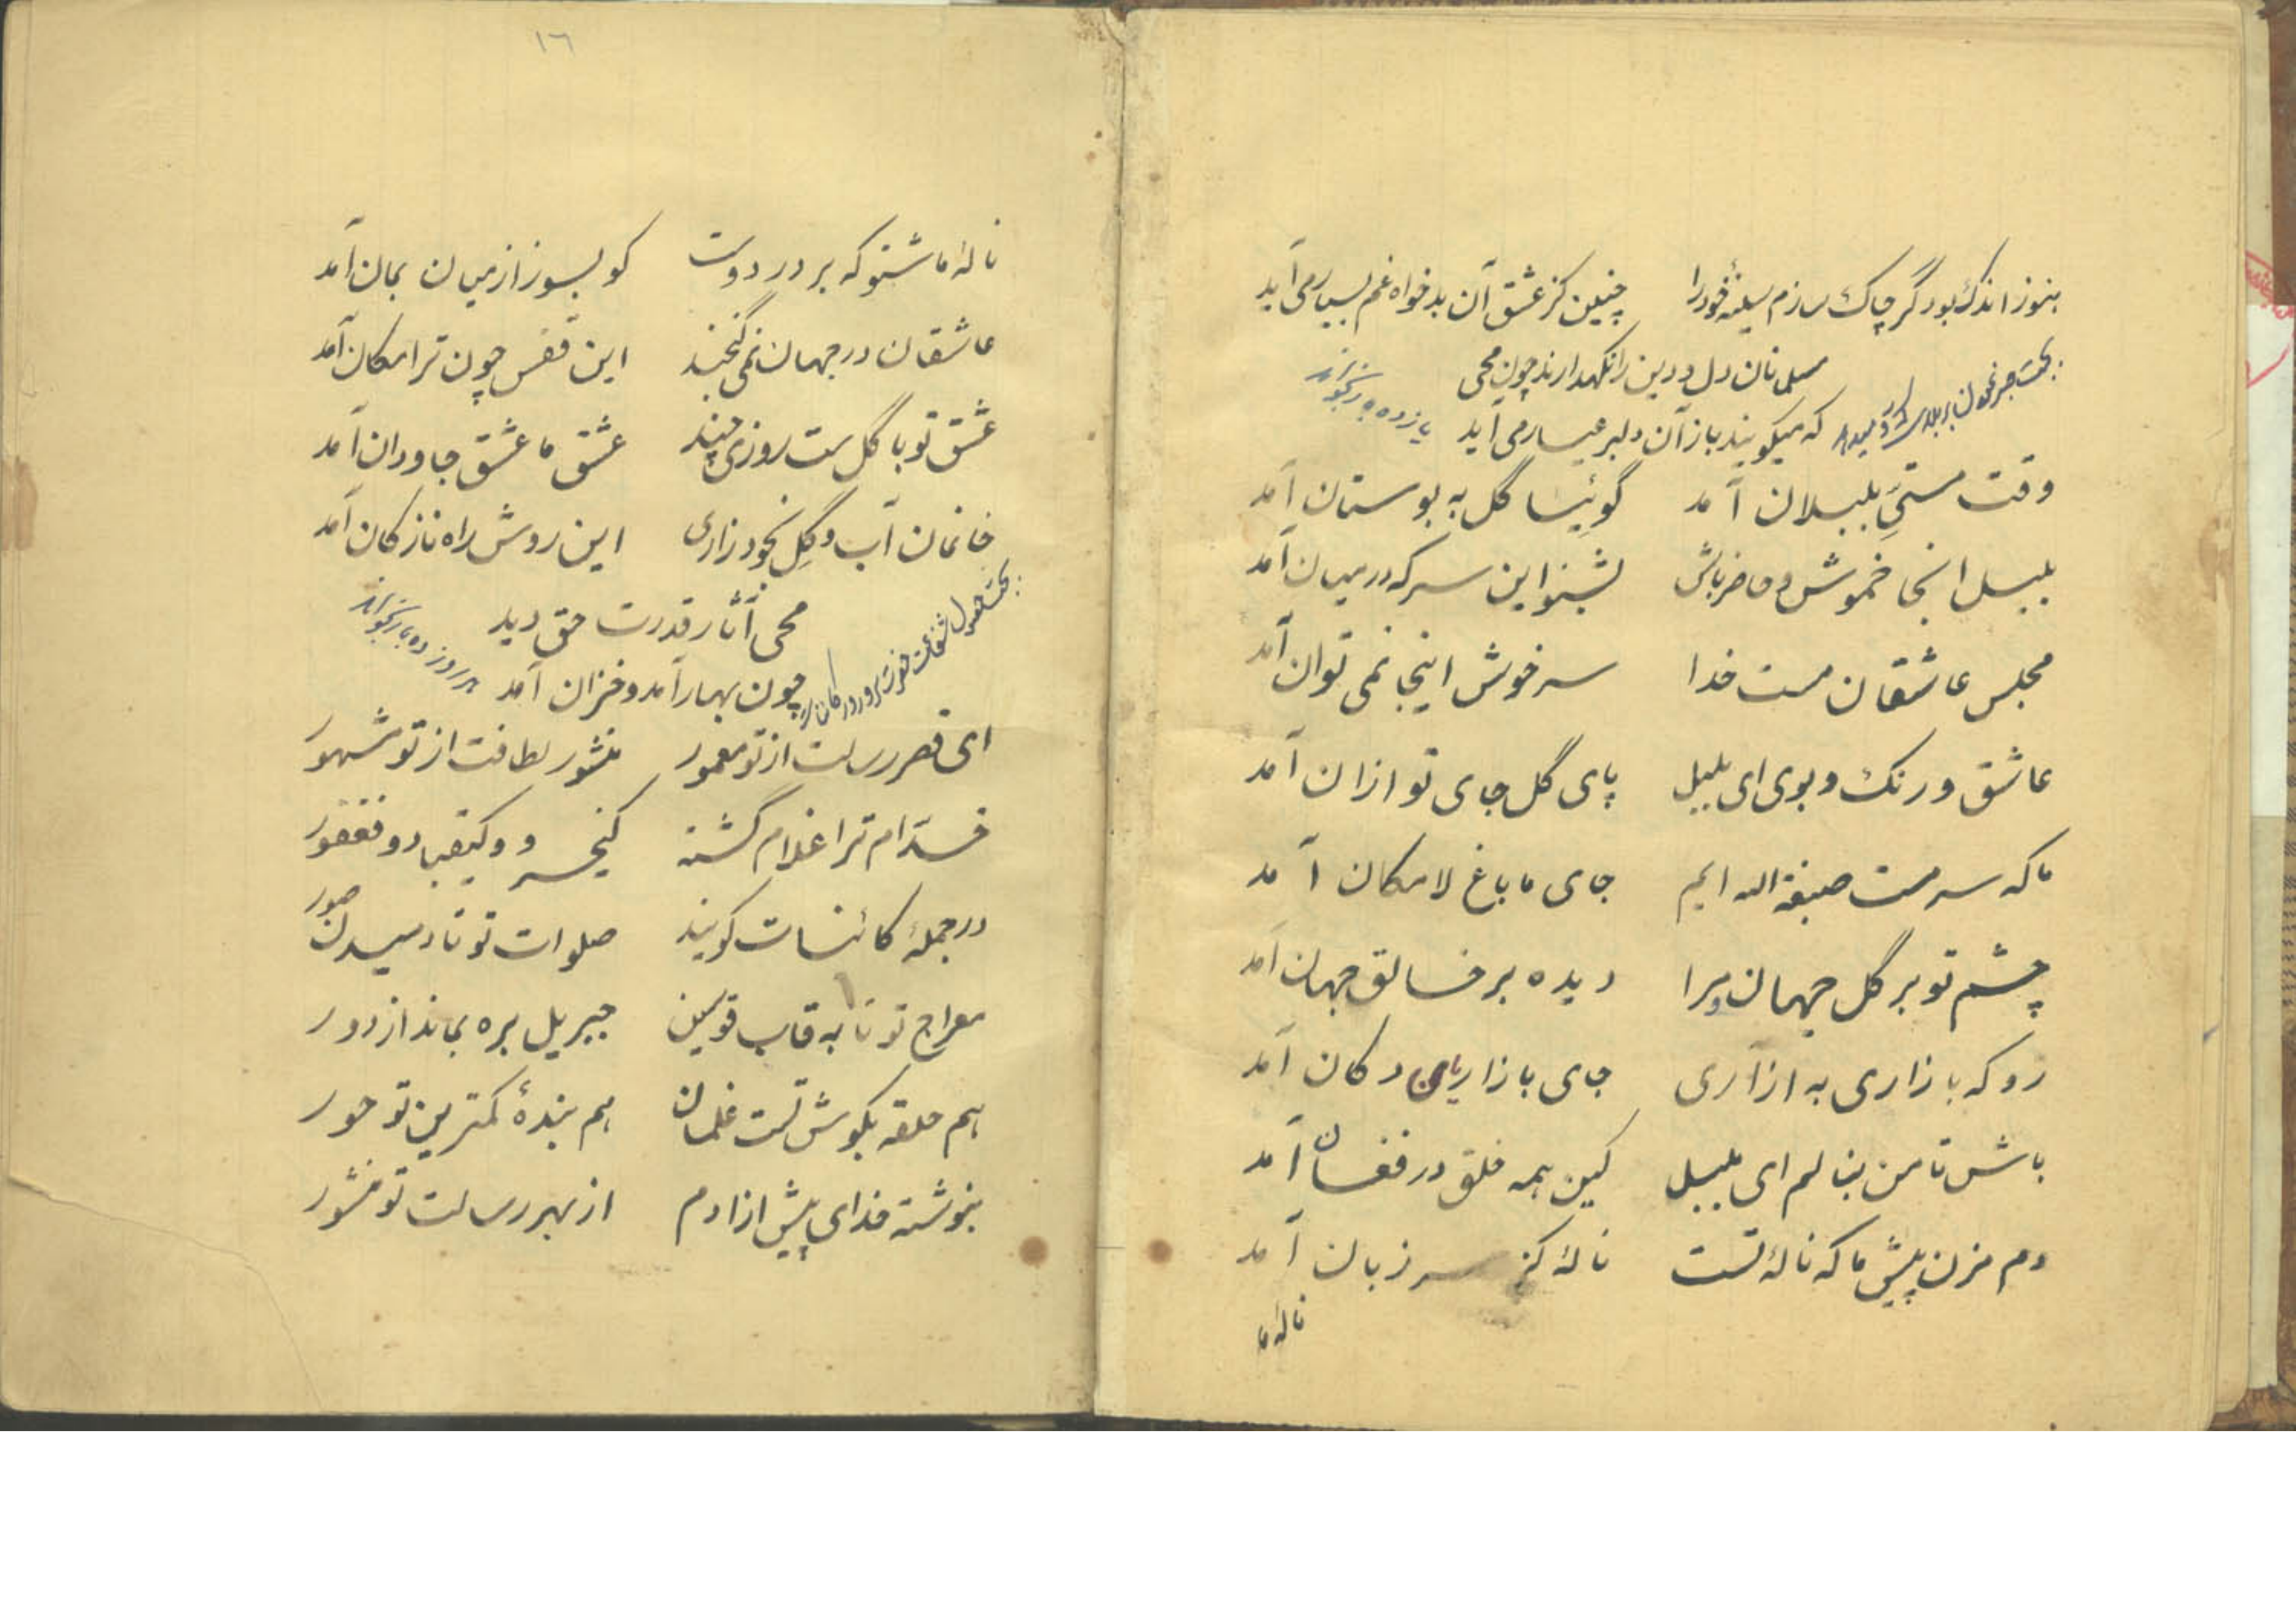 هنوز اندک بود گر چاک سازم سینهٔ خود را چنین کز عشق آن بدخواه غم بسیار می آید
مسلمانان دل و دین را نگهدارند چون محی
که میکویند باز آن دلبر عیار می آید
یازده بار بخواند
وقت مستیِ بلبلان آمد گوئیا گل به بوستان آمد
بلبل انجا خموش و حاضر باش بشنو این سر که در میان آمد
مجلس عاشقان مست خدا سرخوش اینجا نمی توان آمد
عاشق و رنک و بوی ای بلبل پای گل جای تو ازان آمد
ما که سرمست صبغة الله ایم جای ما باغ لامکان آمد
چشم تو بر گل جهان و مرا دیده بر خالق جهان آمد
رو که بازاری به ازاری جای بازاریان دکان آمد
باش تا من بنالم ای بلبل کین همه خلق در فغان آمد
دم مزن پیش ما که نالهٔ تست نالهٔ کز سر زبان آمد
نالهٔ ما
١٦
نالهٔ ما شنو که بر در دوست کو بسوز از میان بمان آمد
عاشقان در جهان نمی گنجند این قفس چون ترا مکان آمد
عشق تو با گل ست روزی چند عشق ما عشق جاودان آمد
خانمان آب و گِل بخود زاری این روش راه نازکان آمد
محی آثار قدرت حق دید
چون بهار آمد و خزان آمد
هر روز ده بار بخواند
ای قصر رسالت از تو معمور منشور لطافت از تو مشهور
خدّام ترا غلام گشته کیخسرو و کیقباد و فغفور
در جملهٔ کائنات کویند صلوات تو تا دمیدن صور
معراج تو تا به قاب قوسین جبریل بره بماند از دور
هم حلقه بکوش تست غلمان هم بندهٔ کمترین تو حور
بنوشته خدای پیش از ادم از بهر رسالت تو منشور